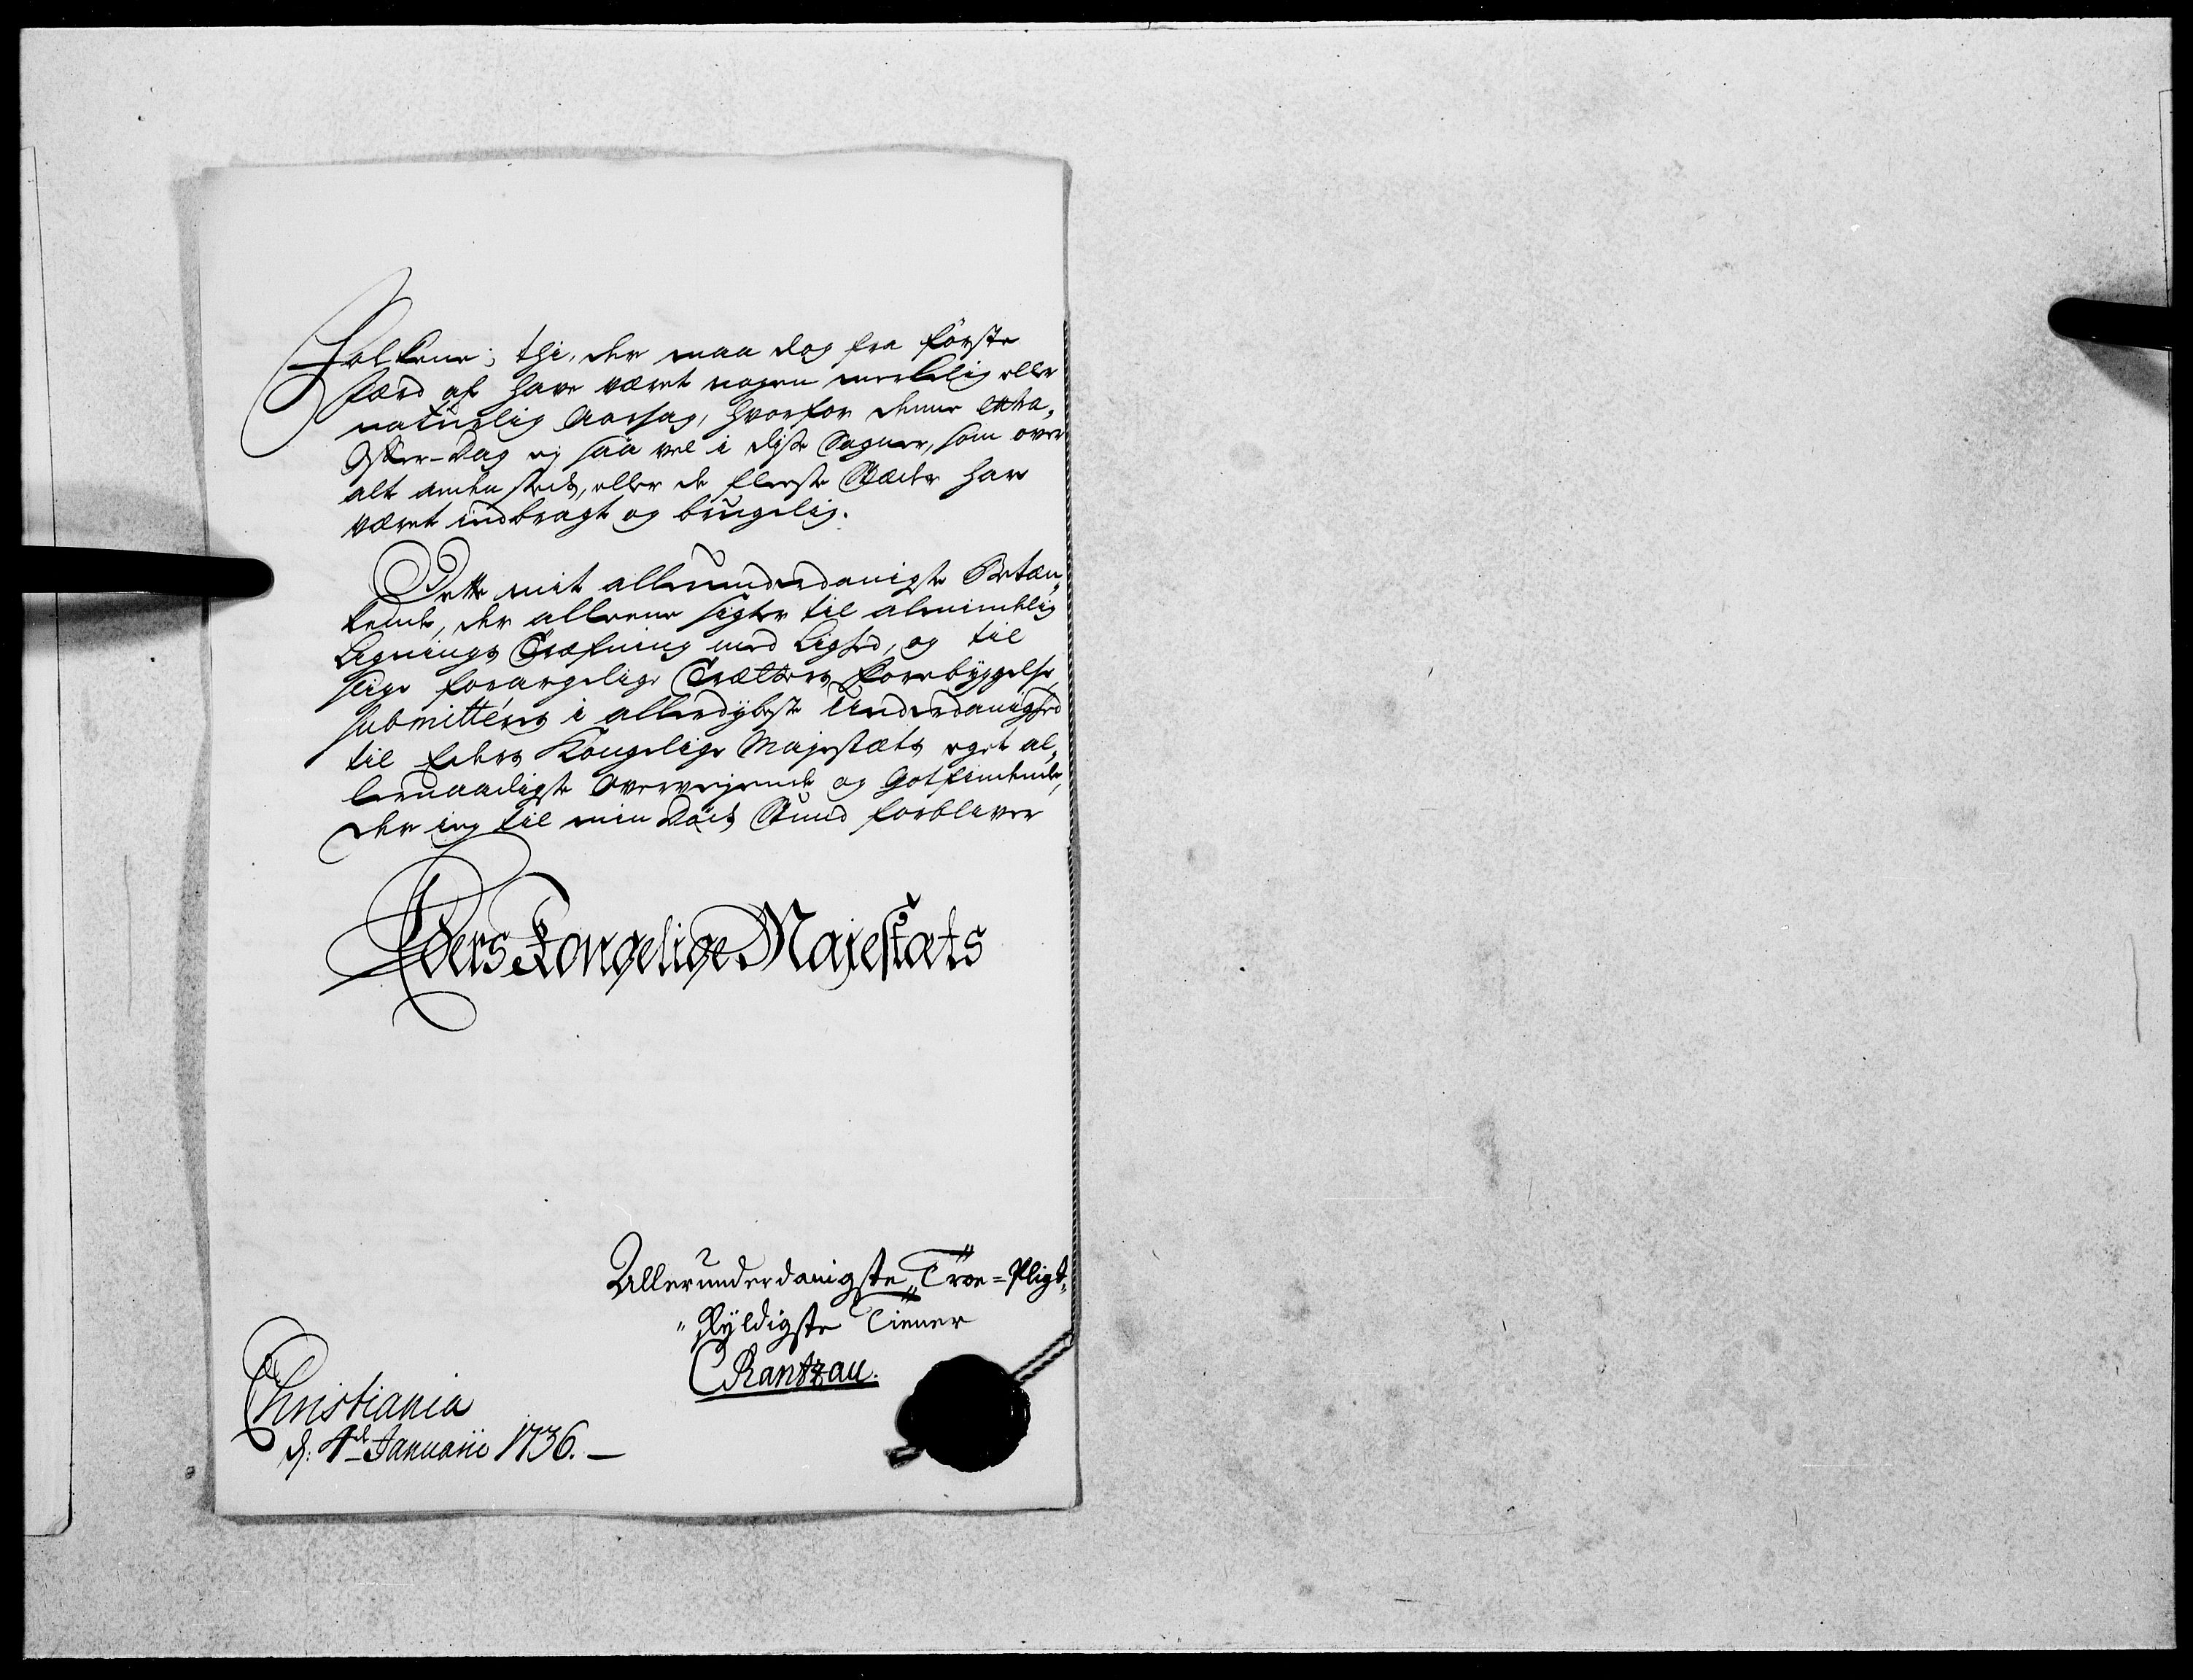 Folkene; thi, der maa dog fra förste
færd af have været nogen merkelig eller
naturlig Aarsag, hvorfor denne extra„
Offer-Dag ej saa vel i disse Sogner, som over
alt andensteds, eller de fleeste Stæder har
været indbragt og brugelig.
Dette mit allerunderdanigste Betæn„
kende, der alleene sigter til almindelig
Lignings Træfning med Lighed, og til
slige forargelige Trætters Forebyggelse
submitteris i allerdybeste Underdanighed
til Eders Kongelige Majestæts eget al„
lernaadigste Overvejende og Gotfindende,
der jeg til min Döds Stund forbliver
Eders Kongelige Majestæts
Allerunderdanigste Troe=Pligt„
„skyldigste Tiener
CRantzau.
Christiania
d: 4de Januarii 1736.—